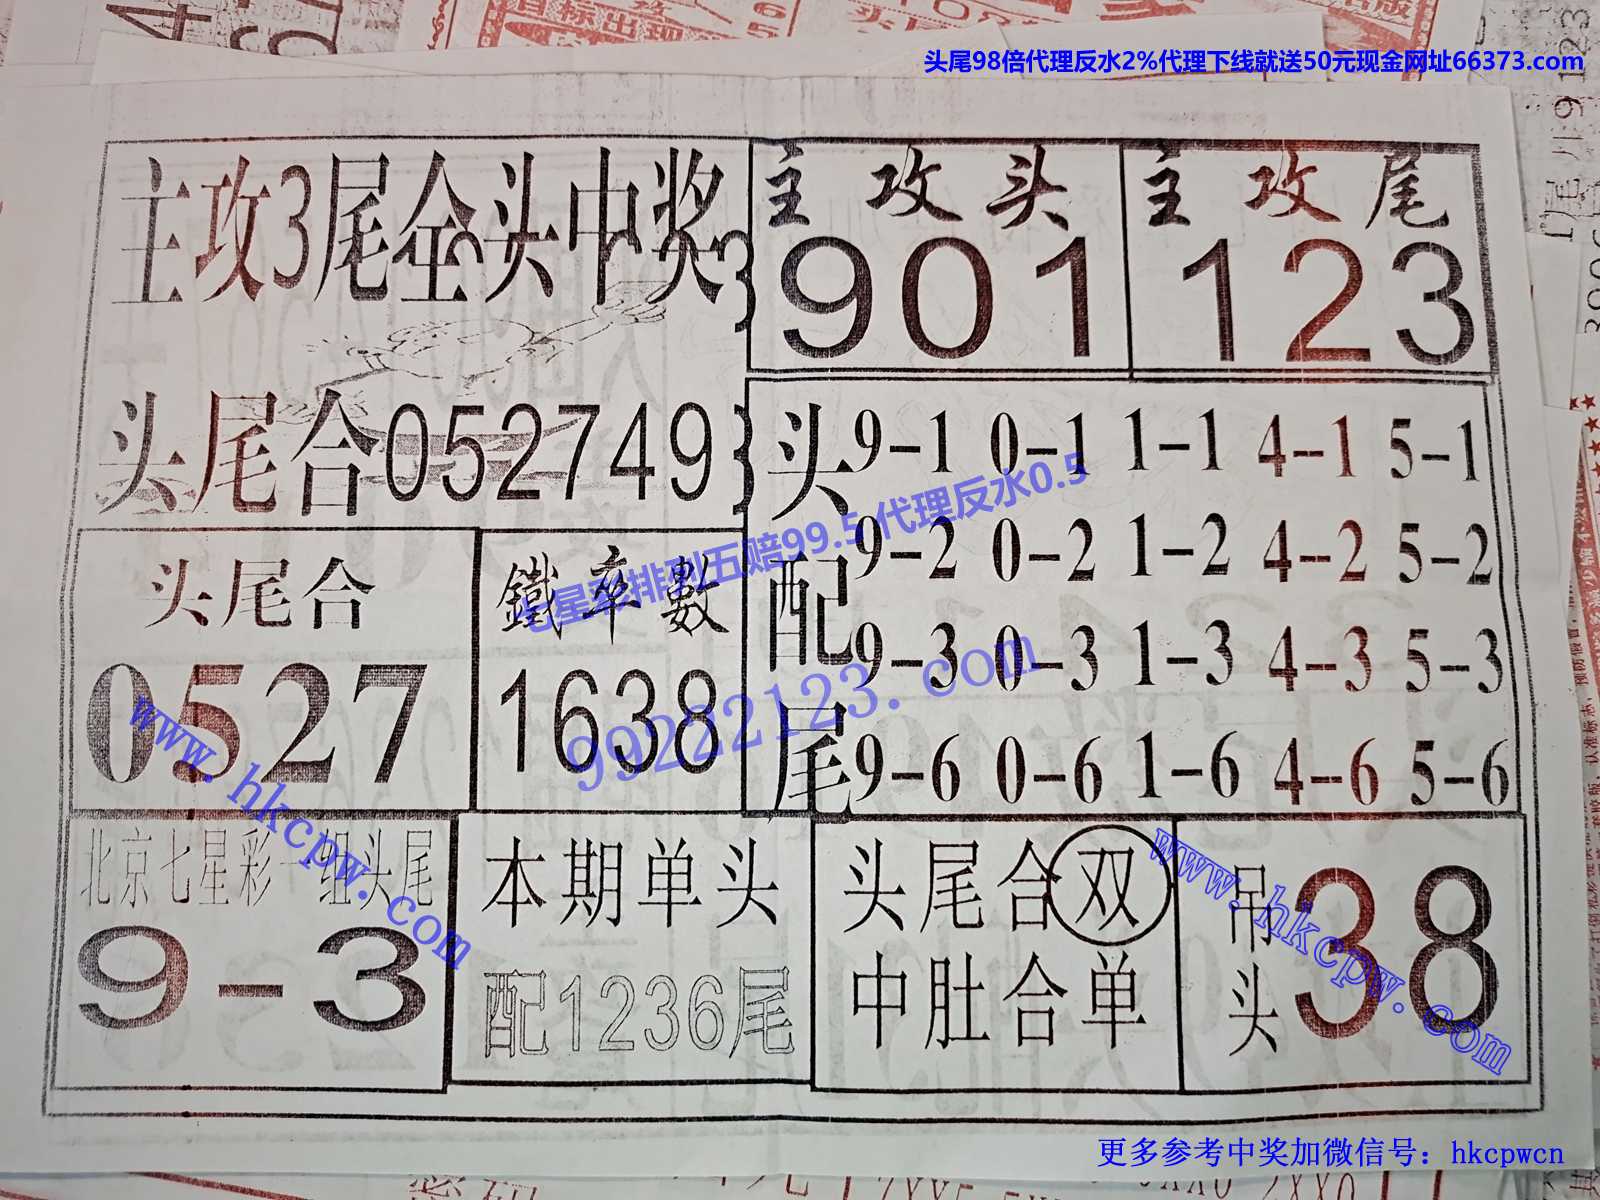 头尾98倍代理反水2%代理下线就送50元现金网址66373.com
主攻3尾全头中奖
主攻头
901
主攻尾
123
头尾合052749
头配尾
9-1 0-1 1-1 4--1 5-1
9-2 0-2 1-2 4--2 5-2
9-3 0-3 1-3 4--3 5-3
9-6 0-6 1-6 4--6 5-6
七星彩排列五赔99.5 代理反水0.5
99222123.com
头尾合
0527
鐵率數
1638
www.hkcpw.com
北京七星彩一组头尾
9-3
本期单头
配1236尾
头尾合双
中肚合单
吊头
38
www.hkcpw.com
更多参考中奖加微信号：hkcpwcn